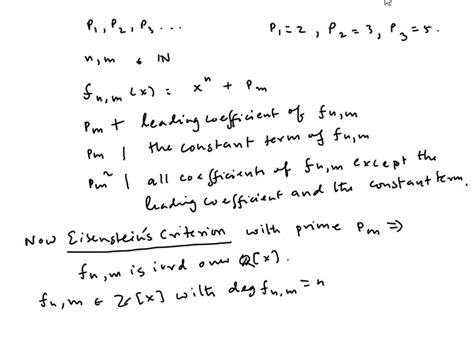 P₁, P₂, P₃ ... P₁ = 2, P₂ = 3, P₃ = 5.
n, m ∈ ℕ
f_{n,m}(x) = xⁿ + P_m
P_m ∤ leading coefficient of f_{n,m}
P_m | the constant term of f_{n,m}
P_m² | all coefficients of f_{n,m} except the
leading coefficient and the constant term.
Now Eisenstein's Criterion with prime P_m ⇒
f_{n,m} is irrd over ℚ[x].
f_{n,m} ∈ ℤ[x] with deg f_{n,m} = n